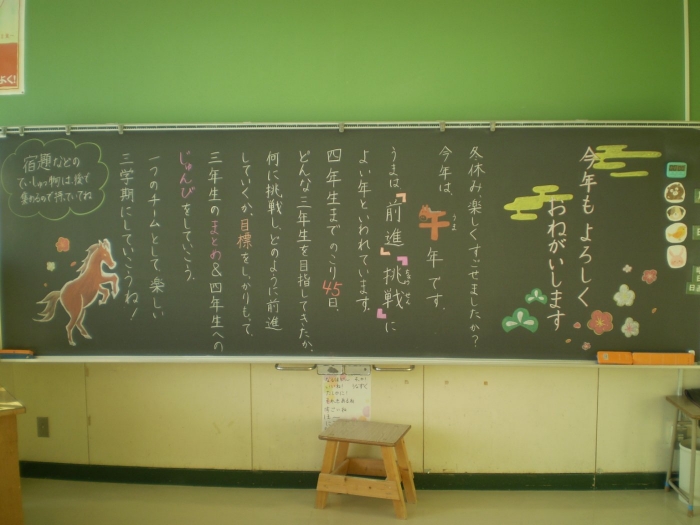 今年もよろしく
おねがいします
冬休み、楽しくすごせましたか？
今年は、午年です。
うま
うまは「前進」「挑戦」に
ちょうせん
よい年といわれています。
四年生まで のこり45日。
どんな三年生を目指してきたか、
何に挑戦し、どのように前進
していくか、目標をしっかりもって、
三年生のまとめ&四年生への
じゅんびをしていこう。
一つのチームとして、楽しい
三学期にしていこうね！
宿題などの
ていしゅつ物は、後で
集めるので待っていてね